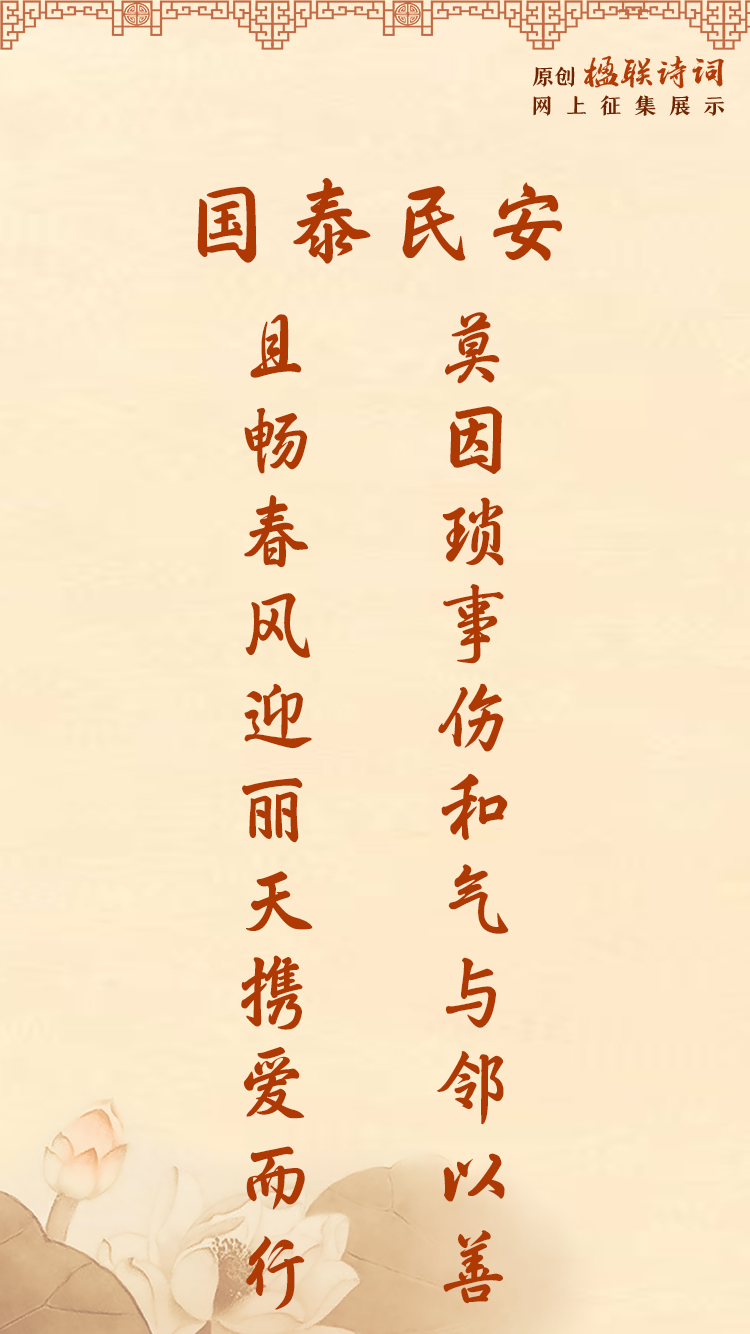 原创 楹联诗词
网上征集展示
国泰民安
莫因琐事伤和气与邻以善
且畅春风迎丽天携爱而行